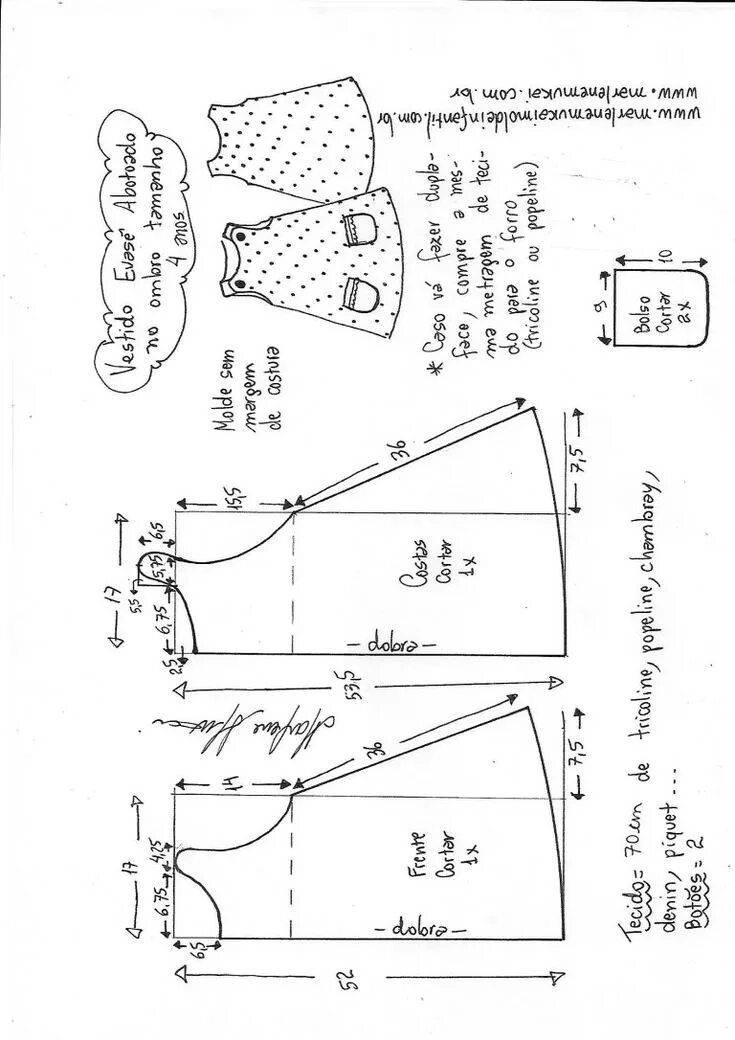 Vestido Evasê Abotoado
au ombro tamanho
4 anos
www.marlenemukaimoldeinfantil.com.br
www.marlenemukai.com.br
Molde sem
margem
de costura
* Caso vá fazer dupla-
face, compre a mes-
ma metragem de teci-
do para o forro
(tricoline ou popeline)
9
10
Bolso
Cortar
2x
17
5,5
6,5
5,75
6,75
2,5
15,5
36
7,5
53,5
Costas
Cortar
1x
- dobra -
Marlene Mukai
17
4,25
6,75
6,5
14
36
7,5
52
Frente
Cortar
1x
- dobra -
Tecido = 70cm de tricoline, popeline, chambray,
denin, piquet ...
Botões = 2